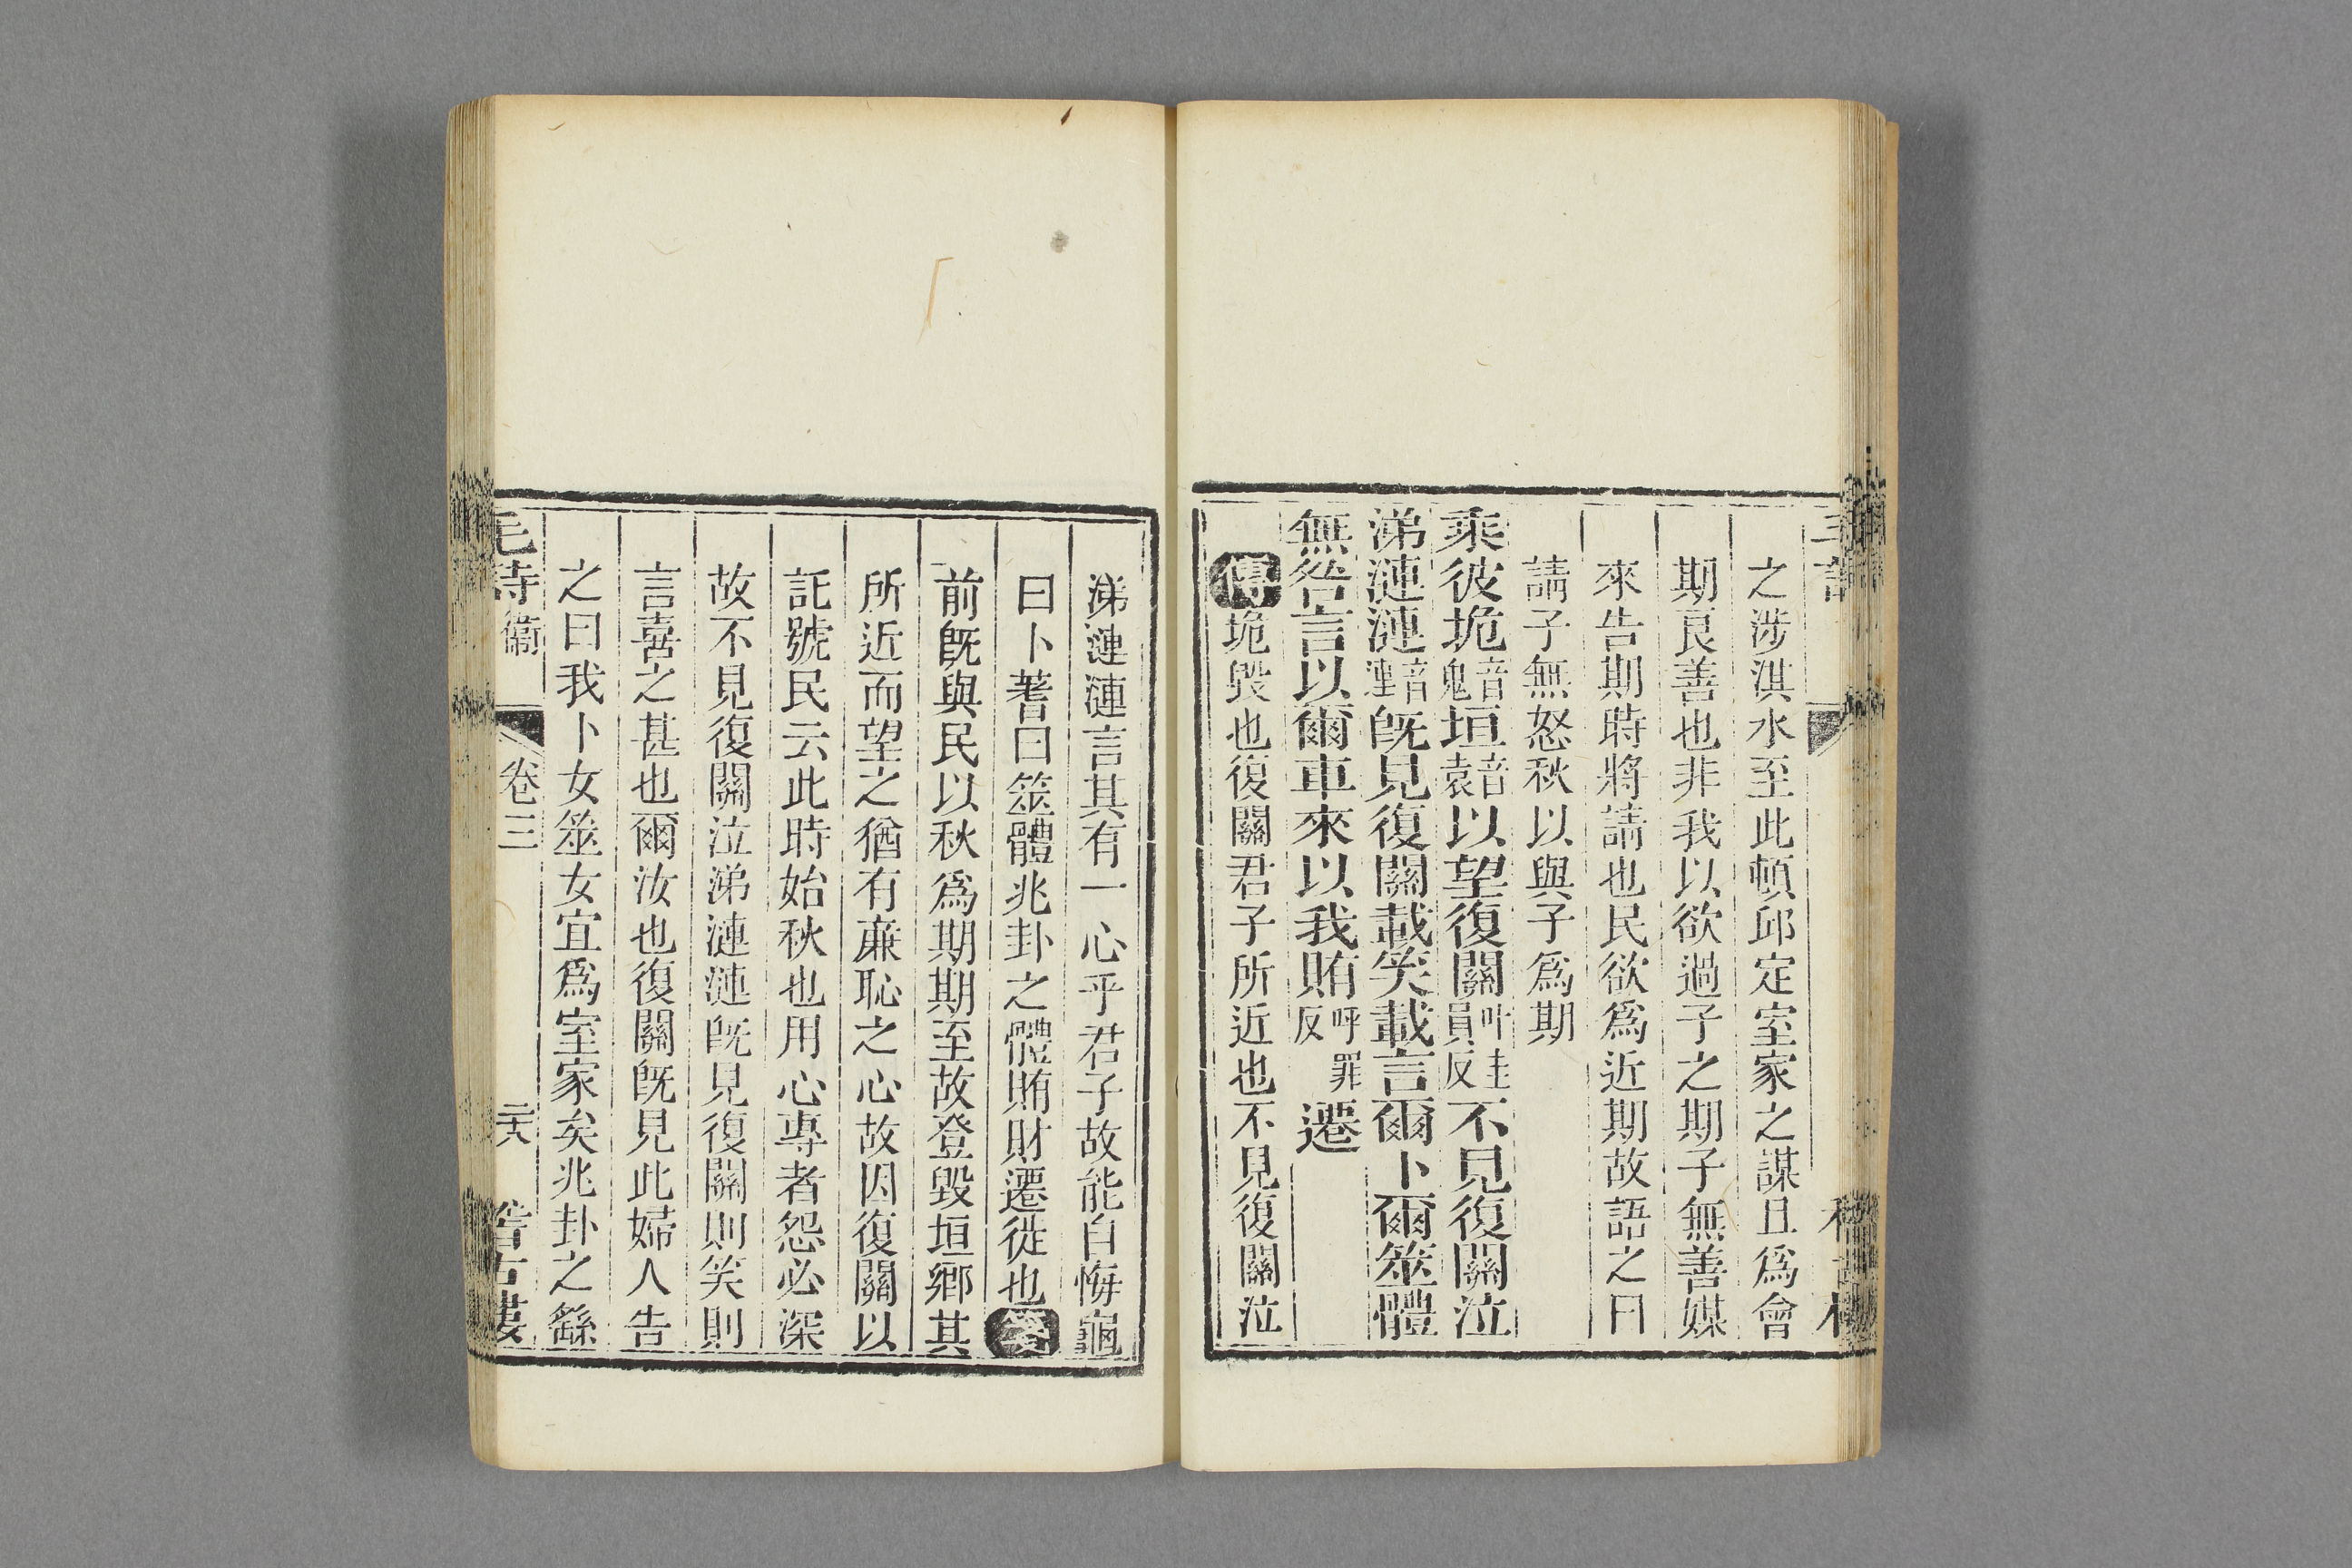 之涉淇水至此頓邱定室家之謀且爲會
期良善也非我以欲過子之期子無善媒
來告期時將請也民欲爲近期故語之曰
請子無怒秋以與子爲期
乘彼垝音鬼垣音袁以望復關叶圭員反不見復關泣
涕漣漣音連既見復關載笑載言爾卜爾筮體
無咎言以爾車來以我賄呼罪反遷
傳垝毀也復關君子所近也不見復關泣
涕漣漣言其有一心乎君子故能自悔龜
曰卜蓍曰筮體兆卦之體賄財遷徙也箋
前既與民以秋爲期期至故登毀垣鄉其
所近而望之猶有廉恥之心故因復關以
託號民云此時始秋也用心專者怨必深
故不見復關泣涕漣漣既見復關則笑則
言喜之甚也爾汝也復關既見此婦人告
之曰我卜女筮女宜爲室家矣兆卦之繇
毛詩衛 卷三 二十八 稽古樓